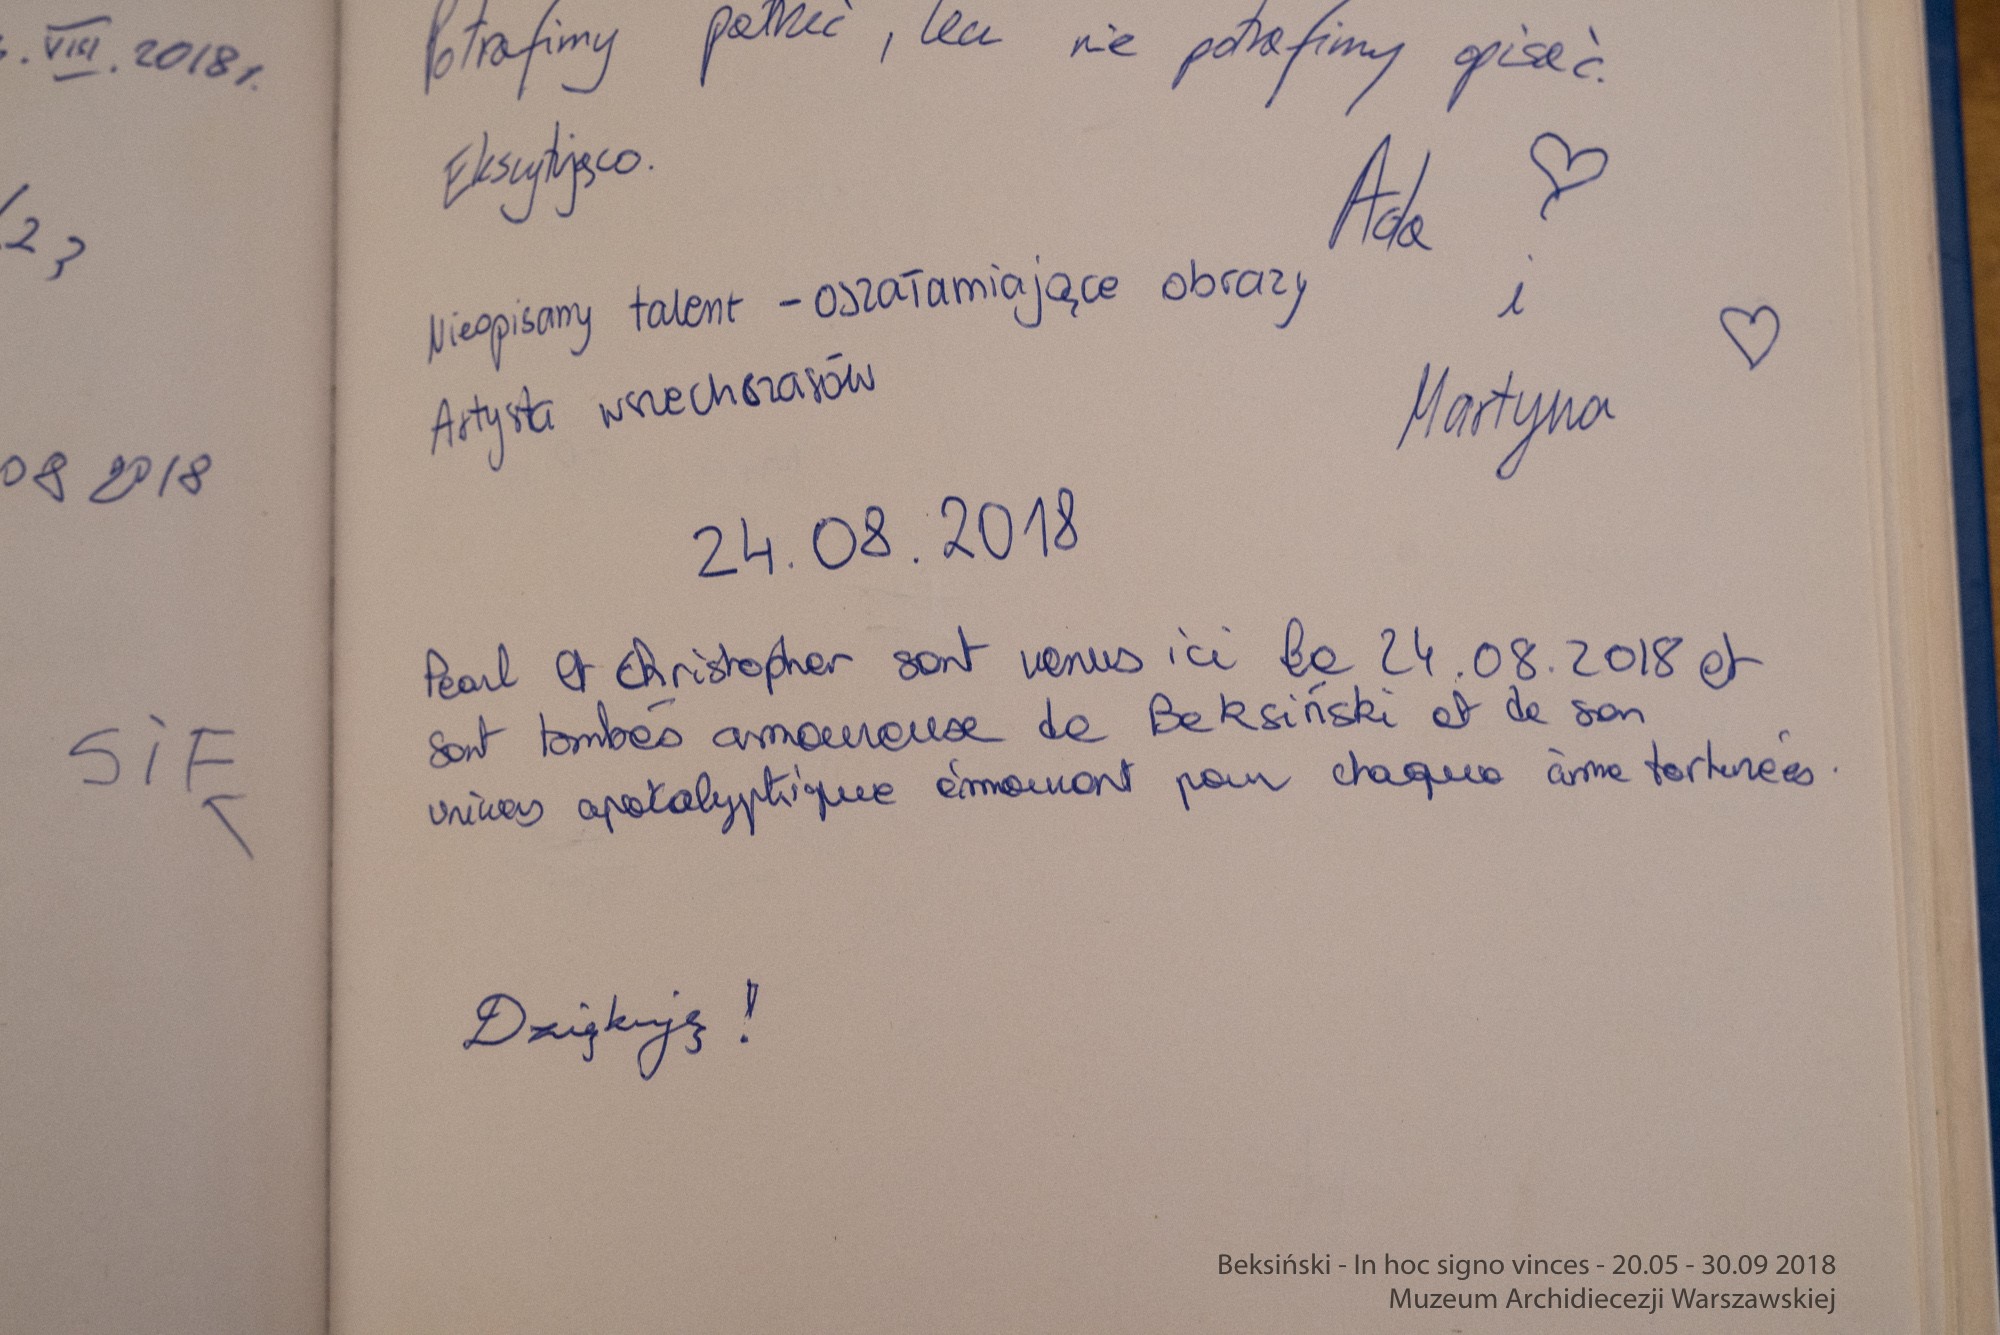 VIII.2018r.
23
08 2018
SiF
Potrafimy patrzeć, lecz nie potrafimy opisać.
Ekscytująco.
Ada
i
Martyna
Nieopisany talent - oszałamiające obrazy
Artysta wszechczasów
24.08.2018
Pearl et Christopher sont venus ici le 24.08.2018 et
sont tombés amoureuse de Beksiński et de son
univers apokalyptique émouvant pour chaque âme torturées.
Dziękuję!
Beksiński - In hoc signo vinces - 20.05 - 30.09 2018
Muzeum Archidiecezji Warszawskiej